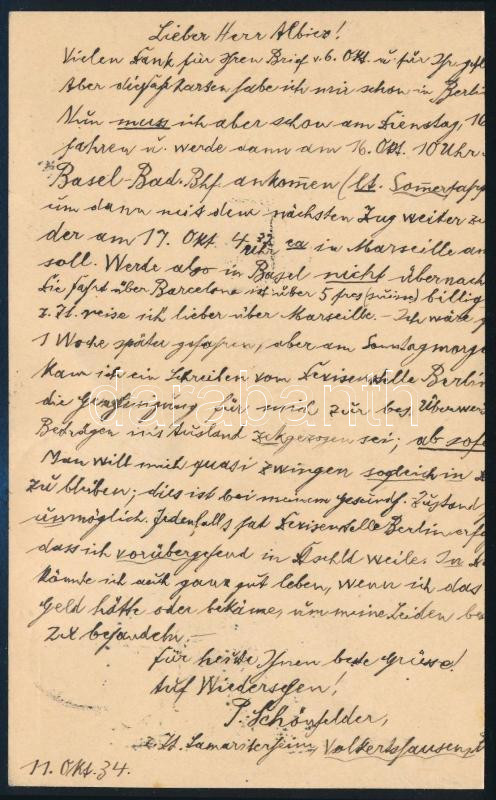 Lieber Herr Albiez!
Vielen Dank für Ihren Brief v. 6. Okt. u. für Ihr
Aber die Fahrkarten habe ich mir schon in Berlin
Nun muss ich aber schon am Dienstag, 16
fahren u. werde dann am 16. Okt. 10 Uhr
Basel-Bad. Bhf. ankommen (lt. Sommerfahrp
um dann mit dem nächsten Zug weiter zu
der am 17. Okt. 4 Uhr ca in Marseille an
soll. Werde also in Basel nicht übernach
Die Fahrt über Barcelona ist über 5 frcs (suisse) billig
z. Zt. reise ich lieber über Marseille. - Ich wäre
1 Woche später gefahren, aber am Sonntagmorge
kam ein Schreiben von Devisenstelle Berlin
die Genehmigung für mich zur bes. Überwei
Beträgen ins Ausland zurückgezogen sei; ab sofo
Man will mich quasi zwingen sogleich in D
zu bleiben; dies ist bei meinem gesundh. Zustand
unmöglich. Jedenfalls hat Devisenstelle Berlin erfa
dass ich vorübergehend in Dtschld weile. In
könnte ich auch ganz gut leben, wenn ich das
Geld hätte oder bekäme, um meine Leiden be
zu behandeln. -
Für heute Ihnen beste Grüsse!
Auf Wiedersehen!
P. Schönfelder,
z. Zt. Samariterheim, Volkertshausen
11. Okt. 34.
darabanth